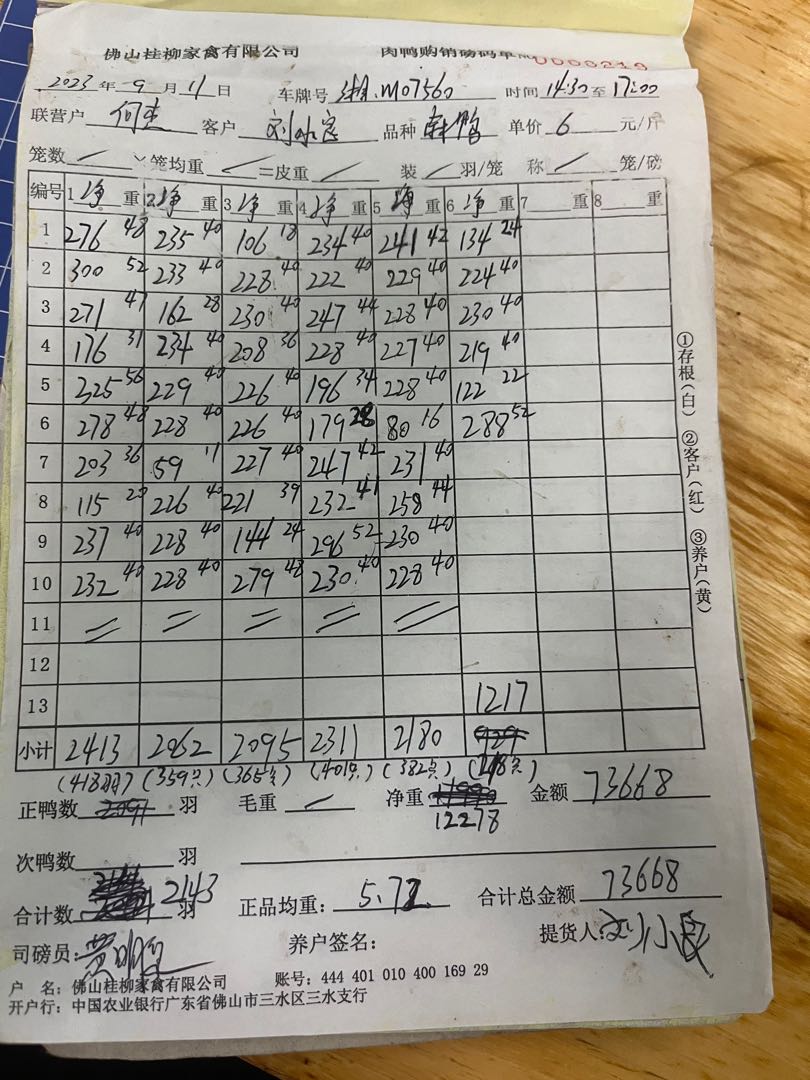 佛山桂柳家禽有限公司 肉鸭购销磅码单 0000219
2023年9月11日 车牌号 湘.M07560 时间 14:30至17:00
联营户 客户 品种 单价 6 元/斤
笼数 / ×笼均重 / =皮重 / 装 / 羽/笼 称 / 笼/磅
编号 1净重 2净重 3净重 4净重 5净重 6净重 7 重 8 重
1 276 48 235 40 106 18 234 40 241 42 134 24
2 300 52 233 40 228 40 222 40 229 40 224 40
3 271 47 162 28 230 40 247 44 228 40 230 40
4 176 31 234 40 208 36 228 40 227 40 219 40
5 325 56 229 40 226 40 196 34 228 40 122 22
6 278 48 228 40 226 40 179 28 80 16 288 52
7 203 36 59 11 227 40 247 42 231 40
8 115 20 226 40 221 39 232 41 258 44
9 237 40 228 40 144 24 296 52 230 40
10 232 40 228 40 279 48 230 40 228 40
11
12
13 1217
小计 2413 2062 2095 2311 2180
(418羽) (359只) (365只) (401只) (382只) (218只)
正鸭数 羽 毛重 / 净重 12278 金额 73668
次鸭数 羽
合计数 2143 羽 正品均重: 5.72 合计总金额 73668
司磅员: 养户签名: 提货人:
户 名: 佛山桂柳家禽有限公司 账号: 444 401 010 400 169 29
开户行: 中国农业银行广东省佛山市三水区三水支行
①存根(白) ②客户(红) ③养户(黄)